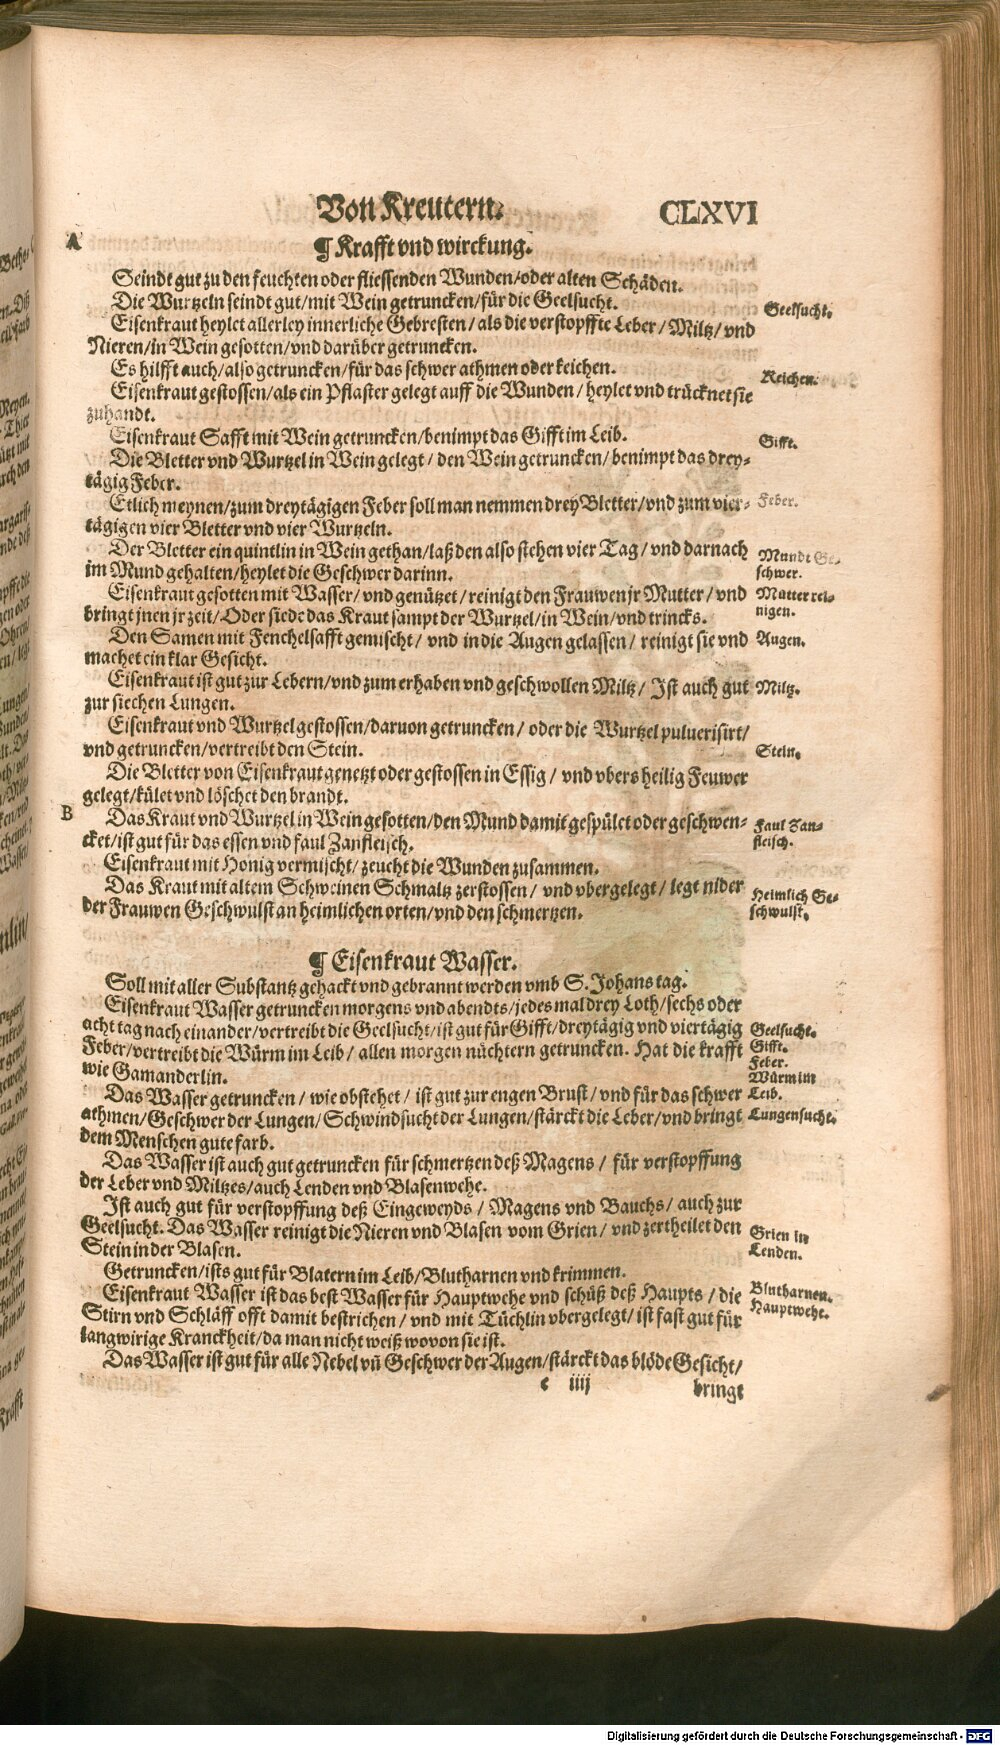 Von Kreutern. CLXVI
A
¶ Krafft vnd wirckung.
Seindt gut zu den feuchten oder fliessenden Wunden/oder alten Schäden.
Die Wurtzeln seindt gut/mit Wein getruncken/für die Geelsucht.
Geelsucht.
Eisenkraut heylet allerley innerliche Gebresten/als die verstopffte Leber/Miltz/vnd
Nieren/in Wein gesotten/vnd darüber getruncken.
Es hilfft auch/also getruncken/für das schwer athmen oder keichen.
Keichen.
Eisenkraut gestossen/als ein Pflaster gelegt auff die Wunden/heylet vnd trücknet sie
zuhandt.
Eisenkraut Safft mit Wein getruncken/benimpt das Gifft im Leib.
Gifft.
Die Bletter vnd Wurtzel in Wein gelegt/den Wein getruncken/benimpt das drey-
tägig Feber.
Etlich meynen/zum dreytägigen Feber soll man nemmen drey Bletter/vnd zum vier-
Feber.
tägigen vier Bletter vnd vier Wurtzeln.
Der Bletter ein quintlin in Wein gethan/laß den also stehen vier Tag/vnd darnach
im Mund gehalten/heylet die Geschwer darinn.
Mundt Ge-
schwer.
Eisenkraut gesotten mit Wasser/vnd genützet/reinigt den Frauwen jr Mutter/vnd
bringt jnen jr zeit/Oder siede das Kraut sampt der Wurtzel/in Wein/vnd trincks.
Mutter rei-
nigen.
Den Samen mit Fenchelsafft gemischt/vnd in die Augen gelassen/reinigt sie vnd
Augen.
machet ein klar Gesicht.
Eisenkraut ist gut zur Lebern/vnd zum erhaben vnd geschwollen Miltz/Ist auch gut
Miltz.
zur siechen Lungen.
Eisenkraut vnd Wurtzel gestossen/daruon getruncken/oder die Wurtzel puluerisirt/
vnd getruncken/vertreibt den Stein.
Stein.
Die Bletter von Eisenkraut genetzt oder gestossen in Essig/vnd vbers heilig Feuwer
gelegt/kület vnd löschet den brandt.
B
Das Kraut vnd Wurtzel in Wein gesotten/den Mund damit gespület oder geschwen-
cket/ist gut für das essen vnd faul Zanfleisch.
Faul Zan-
fleisch.
Eisenkraut mit Honig vermischt/zeucht die Wunden zusammen.
Das Kraut mit altem Schweinen Schmaltz zerstossen/vnd vbergelegt/legt nider
der Frauwen Geschwulst an heimlichen orten/vnd den schmertzen.
Heimlich Ge-
schwulst.
¶ Eisenkraut Wasser.
Soll mit aller Substantz gehackt vnd gebrannt werden vmb S. Johans tag.
Eisenkraut Wasser getruncken morgens vnd abendts/jedes mal drey Loth/sechs oder
acht tag nach einander/vertreibt die Geelsucht/ist gut für Gifft/dreytägig vnd viertägig
Feber/vertreibt die Würm im Leib/allen morgen nüchtern getruncken. Hat die krafft
wie Gamanderlin.
Geelsucht.
Gifft.
Feber.
Würm im
Leib.
Das Wasser getruncken/wie obstehet/ist gut zur engen Brust/vnd für das schwer
athmen/Geschwer der Lungen/Schwindsucht der Lungen/stärckt die Leber/vnd bringt
Lungensucht.
dem Menschen gute farb.
Das Wasser ist auch gut getruncken für schmertzen deß Magens/für verstopffung
der Leber vnd Miltzes/auch Lenden vnd Blasenwehe.
Ist auch gut für verstopffung deß Eingeweyds/Magens vnd Bauchs/auch zur
Geelsucht. Das Wasser reinigt die Nieren vnd Blasen vom Grien/vnd zertheilet den
Stein in der Blasen.
Grien in
Lenden.
Getruncken/ists gut für Blatern im Leib/Blutharnen vnd krimmen.
Blutharnen.
Eisenkraut Wasser ist das best Wasser für Hauptwehe vnd schüß deß Haupts/die
Hauptwehe.
Stirn vnd Schläff offt damit bestrichen/vnd mit Tüchlin vbergelegt/ist fast gut für
langwirige Kranckheit/da man nicht weiß wovon sie ist.
Das Wasser ist gut für alle Nebel vñ Geschwer der Augen/stärckt das blöde Gesicht/
c iiij bringt
Digitalisierung gefördert durch die Deutsche Forschungsgemeinschaft - DFG